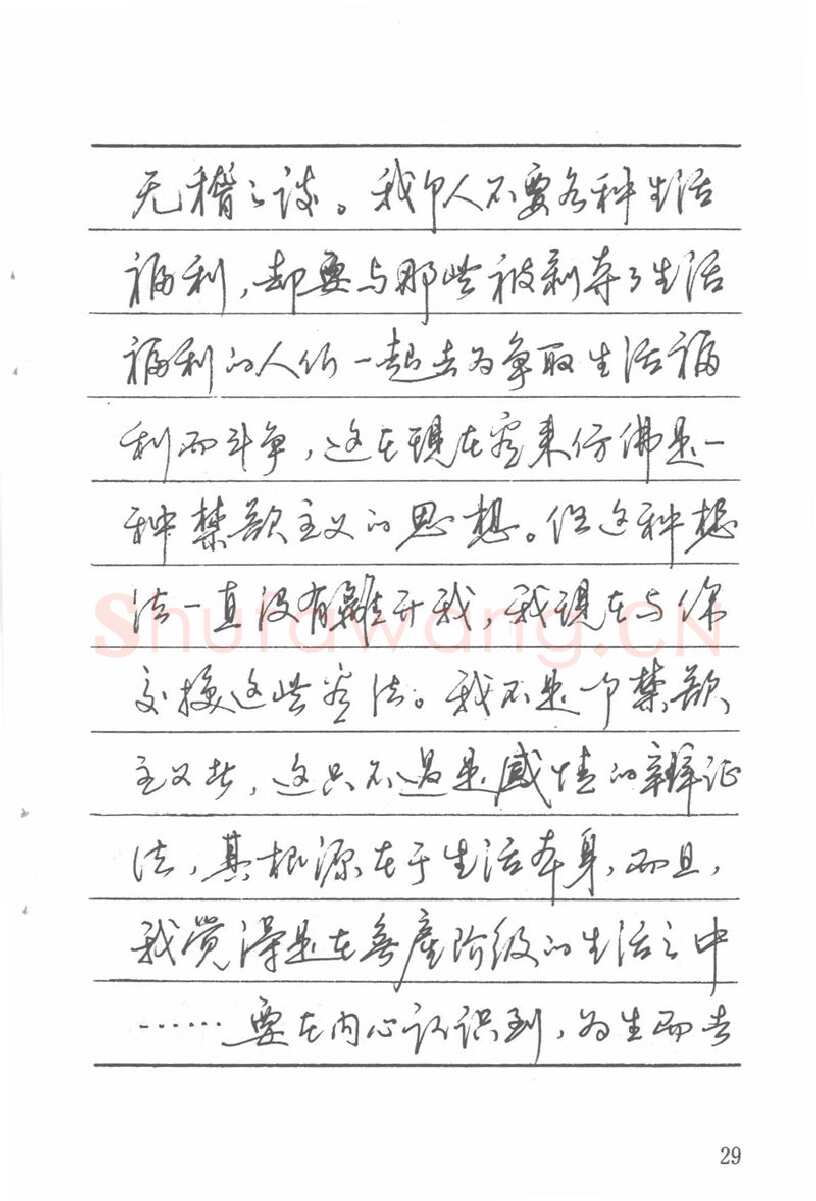 无稽之谈。我个人不要各种生活
福利，却要与那些被剥夺了生活
福利的人们一起去为争取生活福
利而斗争，这在现在看来仿佛是一
种禁欲主义的思想。但这种想
法一直没有離开我，我现在与你
交换这些看法。我不是个禁欲
主义者，这只不过是感情的辩证
法，其根源在于生活本身，而且，
我觉得是在無產阶级的生活之中
……要在内心认识到，为生而去
Shufawang.CN
29